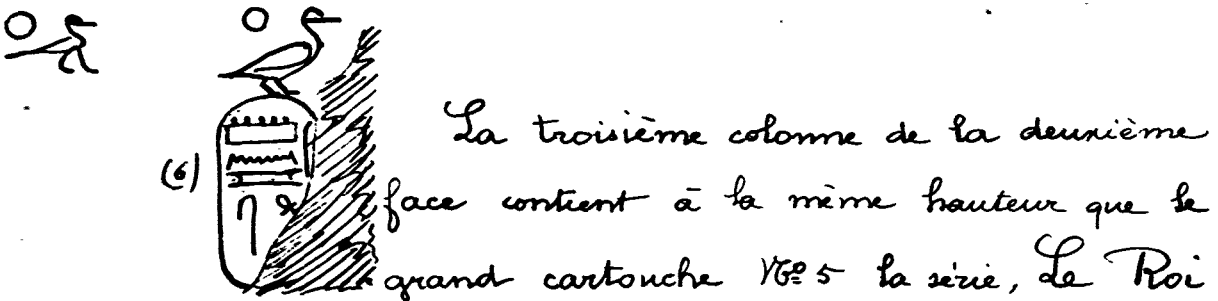 (6)
La troisième colonne de la deuxième
face contient à la même hauteur que le
grand cartouche Nº 5 la série, Le Roi